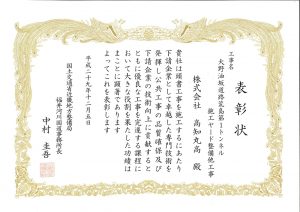 表彰状
工事名
大野油坂道路荒島第1トンネル
施工ヤード整備他工事
株式会社 高知丸高 殿
貴社は頭書工事を施工するにあたり
下請企業として卓越した専門技術を
発揮し公共工事の品質確保及び
下請企業の技術向上に貢献すると
ともに優良な工事を完遂する課程に
おいて大きな役割を果たした功績は
まことに顕著であります
よってこれを表彰します
平成二十九年十二月五日
国土交通省近畿地方整備局
福井河川国道事務所長
中村 圭吾